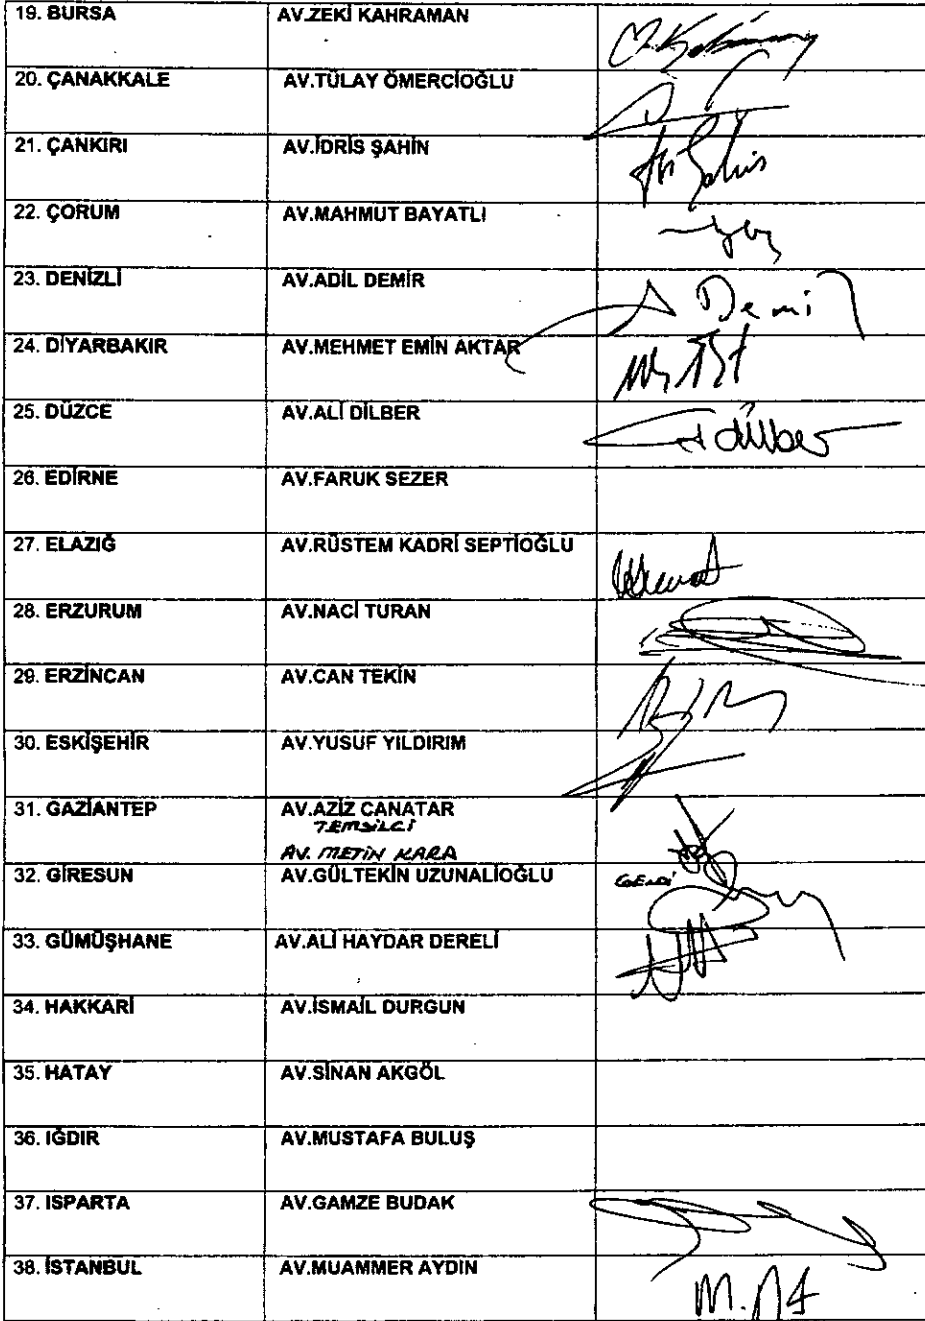 19. BURSA AV.ZEKİ KAHRAMAN
20. ÇANAKKALE AV.TÜLAY ÖMERCİOĞLU
21. ÇANKIRI AV.İDRİS ŞAHİN
22. ÇORUM AV.MAHMUT BAYATLI
23. DENİZLİ AV.ADİL DEMİR A Demir
24. DİYARBAKIR AV.MEHMET EMİN AKTAR
25. DÜZCE AV.ALİ DİLBER A dilber
26. EDİRNE AV.FARUK SEZER
27. ELAZIĞ AV.RÜSTEM KADRİ SEPTİOĞLU
28. ERZURUM AV.NACİ TURAN
29. ERZİNCAN AV.CAN TEKİN
30. ESKİŞEHİR AV.YUSUF YILDIRIM
31. GAZİANTEP AV.AZİZ CANATAR
TEMSİLCİ
AV. METİN KARA
32. GİRESUN AV.GÜLTEKİN UZUNALİOĞLU GELDİ
33. GÜMÜŞHANE AV.ALİ HAYDAR DERELİ
34. HAKKARİ AV.İSMAİL DURGUN
35. HATAY AV.SİNAN AKGÖL
36. IĞDIR AV.MUSTAFA BULUŞ
37. ISPARTA AV.GAMZE BUDAK
38. İSTANBUL AV.MUAMMER AYDIN